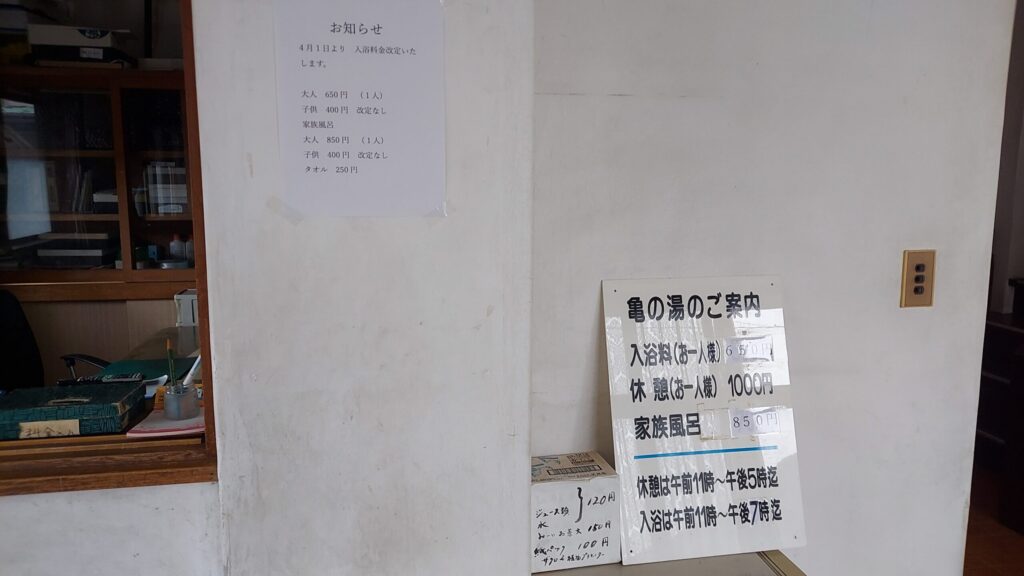 お知らせ
4月1日より 入浴料金改定いた
します。
大人 650円 （1人）
子供 400円 改定なし
家族風呂
大人 850円 （1人）
子供 400円 改定なし
タオル 250円
亀の湯のご案内
入浴料(お一人様) 650円
休憩(お一人様) 1000円
家族風呂 850円
休憩は午前11時〜午後5時迄
入浴は午前11時〜午後7時迄
ジュース類
120円
水
お茶大 150円
紙パック 100円
料金